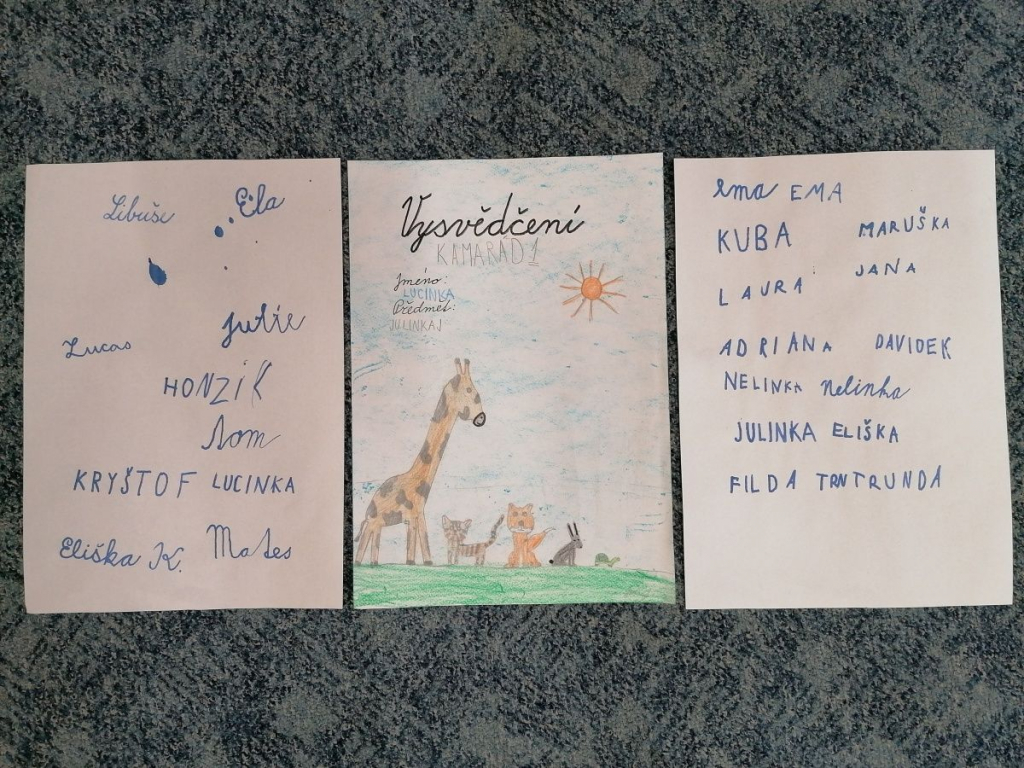 Libuše
Ela
Julie
Lucas
HONZÍK
Tom
KRYŠTOF LUCINKA
Eliška K. Mates
Vysvědčení
KAMARAD 1
Jméno:
LUCINKA
Předmět:
JULINKAJ
ema EMA
KUBA MARUŠKA
LAURA JANA
ADRIANA DAVIDEK
NELINKA nelinka
JULINKA ELIŠKA
FILDA